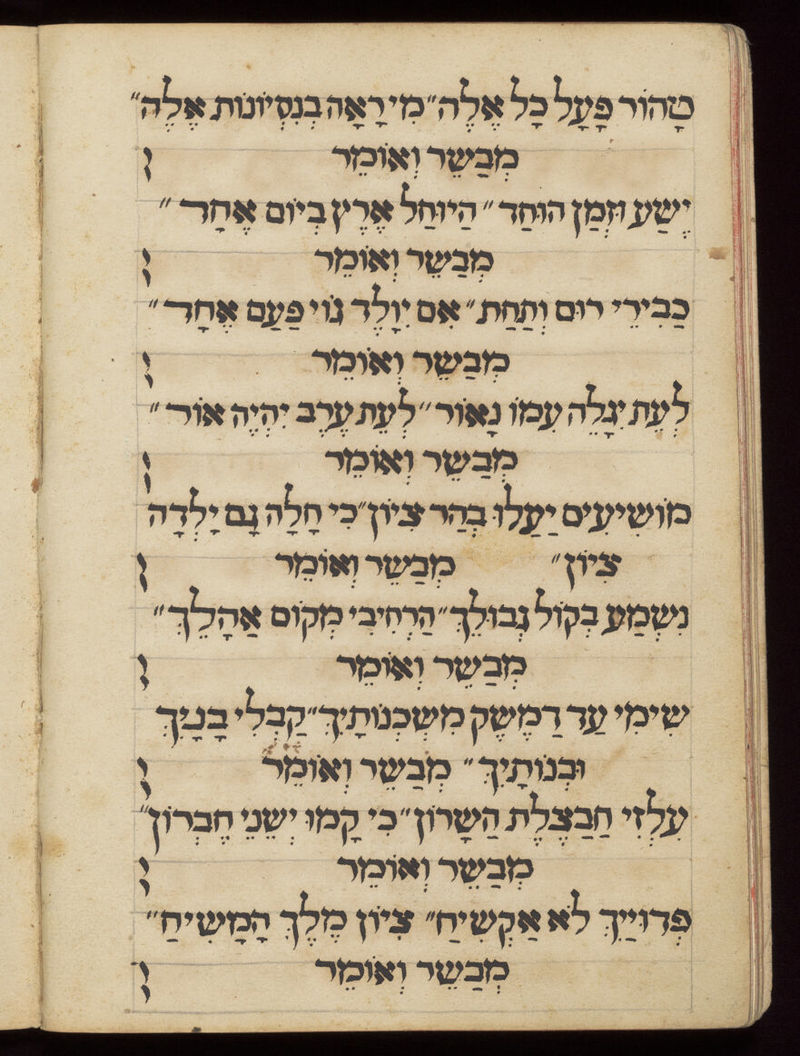 טָהוֹר פָּעַל כָּל אֵלֶּה״ מִי רָאָה בְּנִסְיוֹנוֹת אֵלֶּה״
מְבַשֵּׂר וְאוֹמֵר
יֶשַׁע וּזְמַן הוּחַד״ הַיוּחַל אֶרֶץ בְּיוֹם אֶחָד״
מְבַשֵּׂר וְאוֹמֵר
כַּבִּירֵי רוּם וְתַחַת״ אִם יִוָּלֶד גּוֹי פַּעַם אֶחָד״
מְבַשֵּׂר וְאוֹמֵר
לְעֵת יִגְאָלֵה עִמּוֹ נָאוֹר״ לְעֵת עֶרֶב יִהְיֶה אוֹר״
מְבַשֵּׂר וְאוֹמֵר
מוֹשִׁיעִים יַעֲלוּ בְּהַר צִיּוֹן״ כִּי חָלָה גַּם יָלְדָה
צִיּוֹן״ מְבַשֵּׂר וְאוֹמֵר
נִשְׁמַע בְּקוֹל גְּבוּלֵךְ״ הַרְחִיבִי מְקוֹם אַהֳלֵךְ״
מְבַשֵּׂר וְאוֹמֵר
שִׂימִי עַד דַּמֶּשֶׂק מִשְׁכְּנוֹתַיִךְ״ קַבְּלִי בָּנַיִךְ
וּבְנוֹתַיִךְ״ מְבַשֵּׂר וְאוֹמֵר
עִלְזִי חֲבַצֶּלֶת הַשָּׁרוֹן״ כִּי קָמוּ יְשֵׁנֵי חֶבְרוֹן״
מְבַשֵּׂר וְאוֹמֵר
פְּדוּיַיִךְ לֹא אַקְשִׁיחַ״ צִיּוֹן מֶלֶךְ הַמָּשִׁיחַ״
מְבַשֵּׂר וְאוֹמֵר